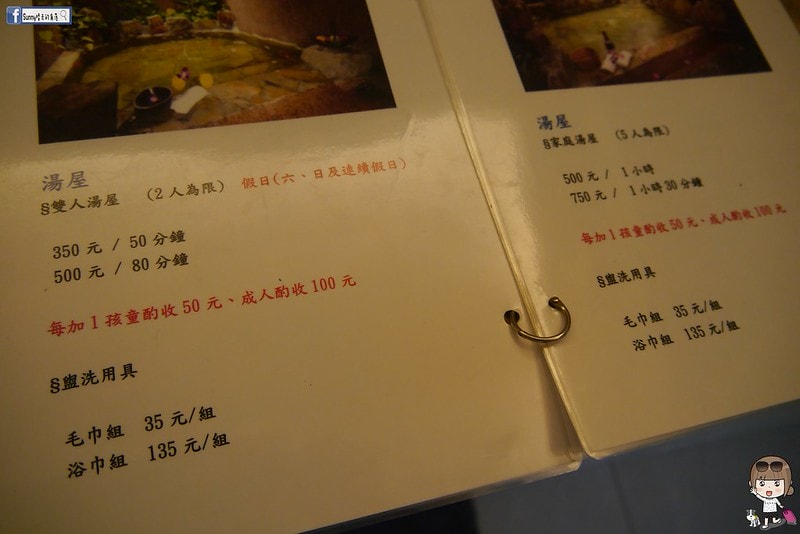 Sunny營養師的窩
湯屋
§雙人湯屋 (2人為限) 假日(六、日及連續假日)
350 元 / 50 分鐘
500 元 / 80 分鐘
每加 1 孩童酌收 50 元、成人酌收 100 元
§盥洗用具
毛巾組 35 元/組
浴巾組 135 元/組
湯屋
§家庭湯屋 (5人為限)
500 元 / 1 小時
750 元 / 1 小時 30 分鐘
每加 1 孩童酌收 50 元、成人酌收 100 元
§盥洗用具
毛巾組 35 元/組
浴巾組 135 元/組